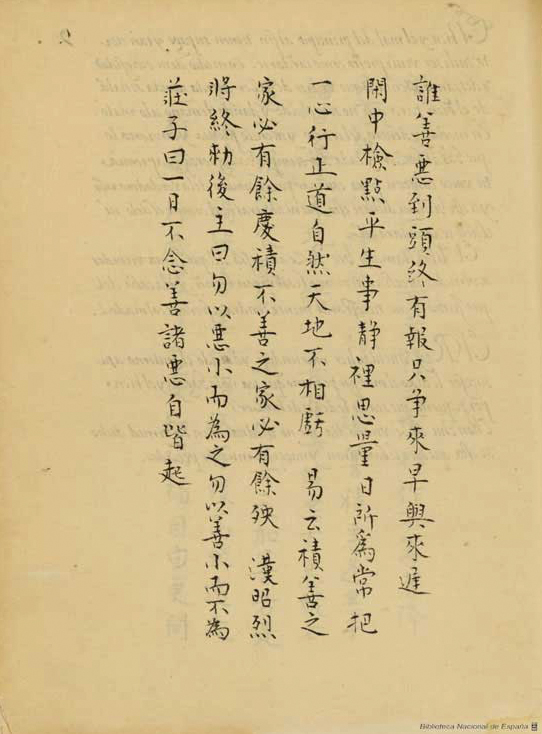 誰善惡到頭終有報只爭來早與來遲
閑中檢點平生事靜裡思量日所爲常把
一心行正道自然天地不相虧 易云積善之
家必有餘慶積不善之家必有餘殃 漢昭烈
將終勅後主曰勿以惡小而為之勿以善小而不為
莊子曰一日不念善諸惡自皆起
Biblioteca Nacional de España